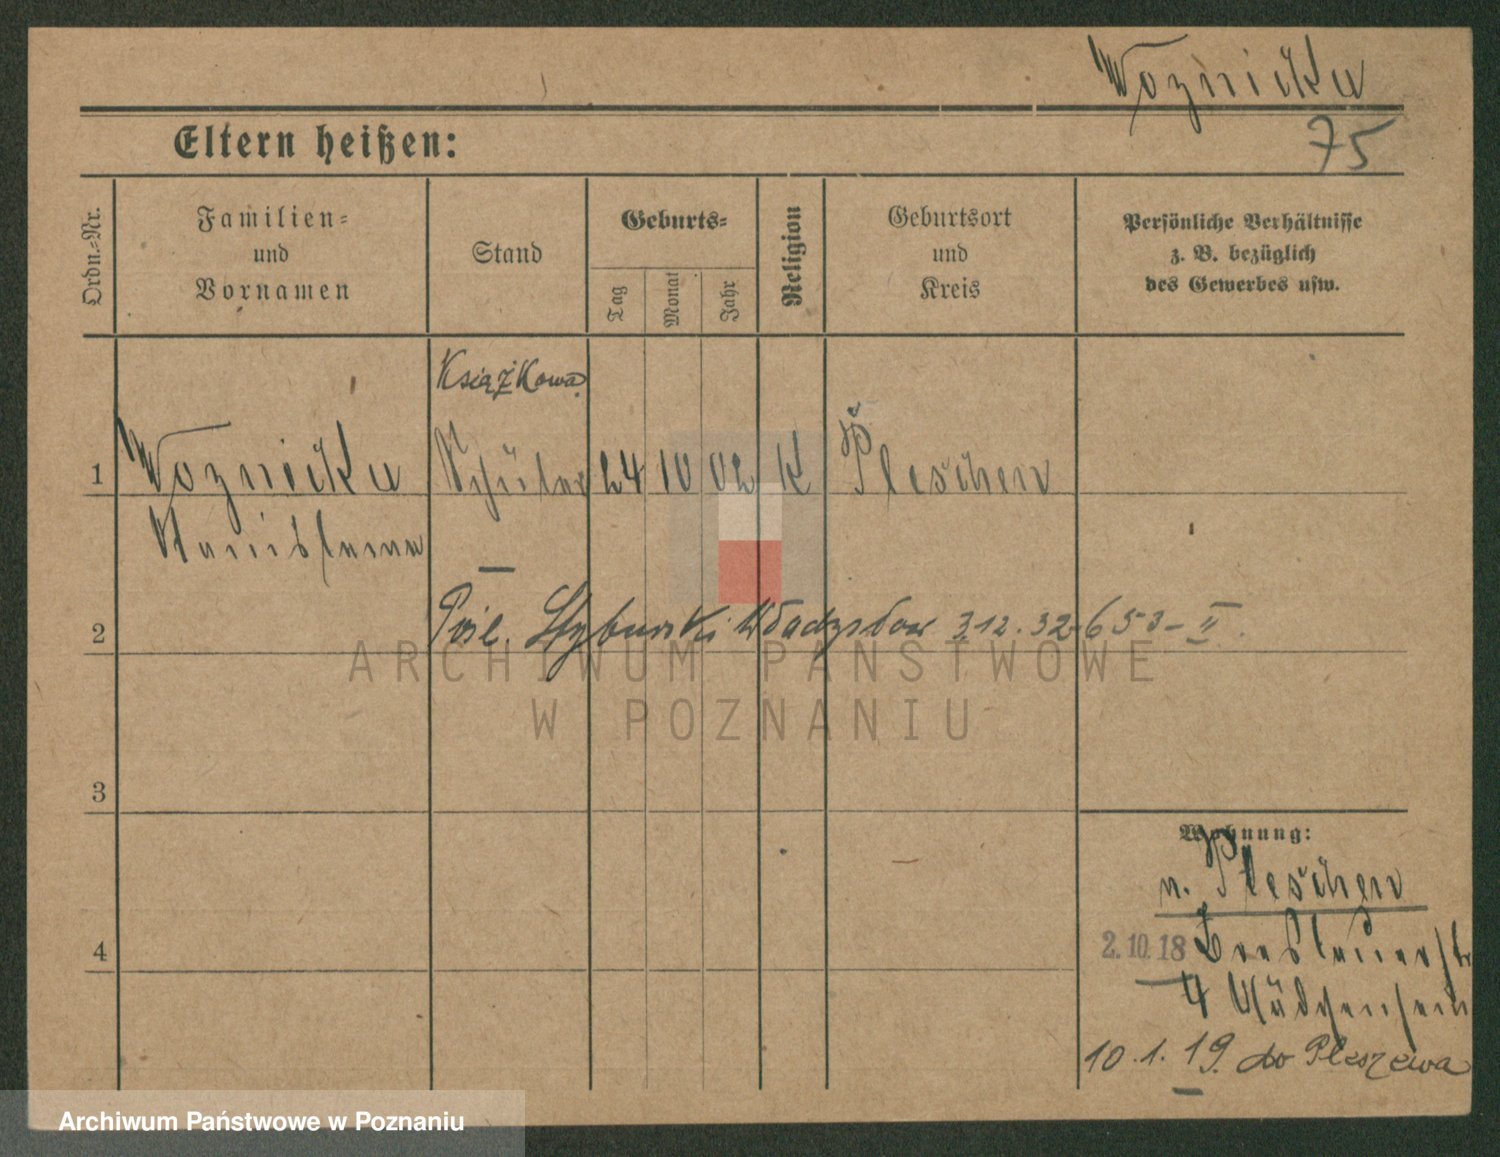 Woznicka
75
Eltern heißen:
Ordn.-Nr.
Familien-
und
Vornamen
Stand
Geburts-
Tag
Monat
Jahr
Religion
Geburtsort
und
Kreis
Persönliche Verhältnisse
z. B. bezüglich
des Gewerbes usw.
Książkowa
1 Woznicka Schüler 24 10 02 K Pleschen
Stanislawa
2 Włodzysław 3.12.32-653-II.
ARCHIWUM PAŃSTWOWE
W POZNANIU
3
Wohnung:
n. Pleschen
4
2.10.18 Breslauerstr
4 Mädchenheim
10.1.19. do Pleszewa
Archiwum Państwowe w Poznaniu